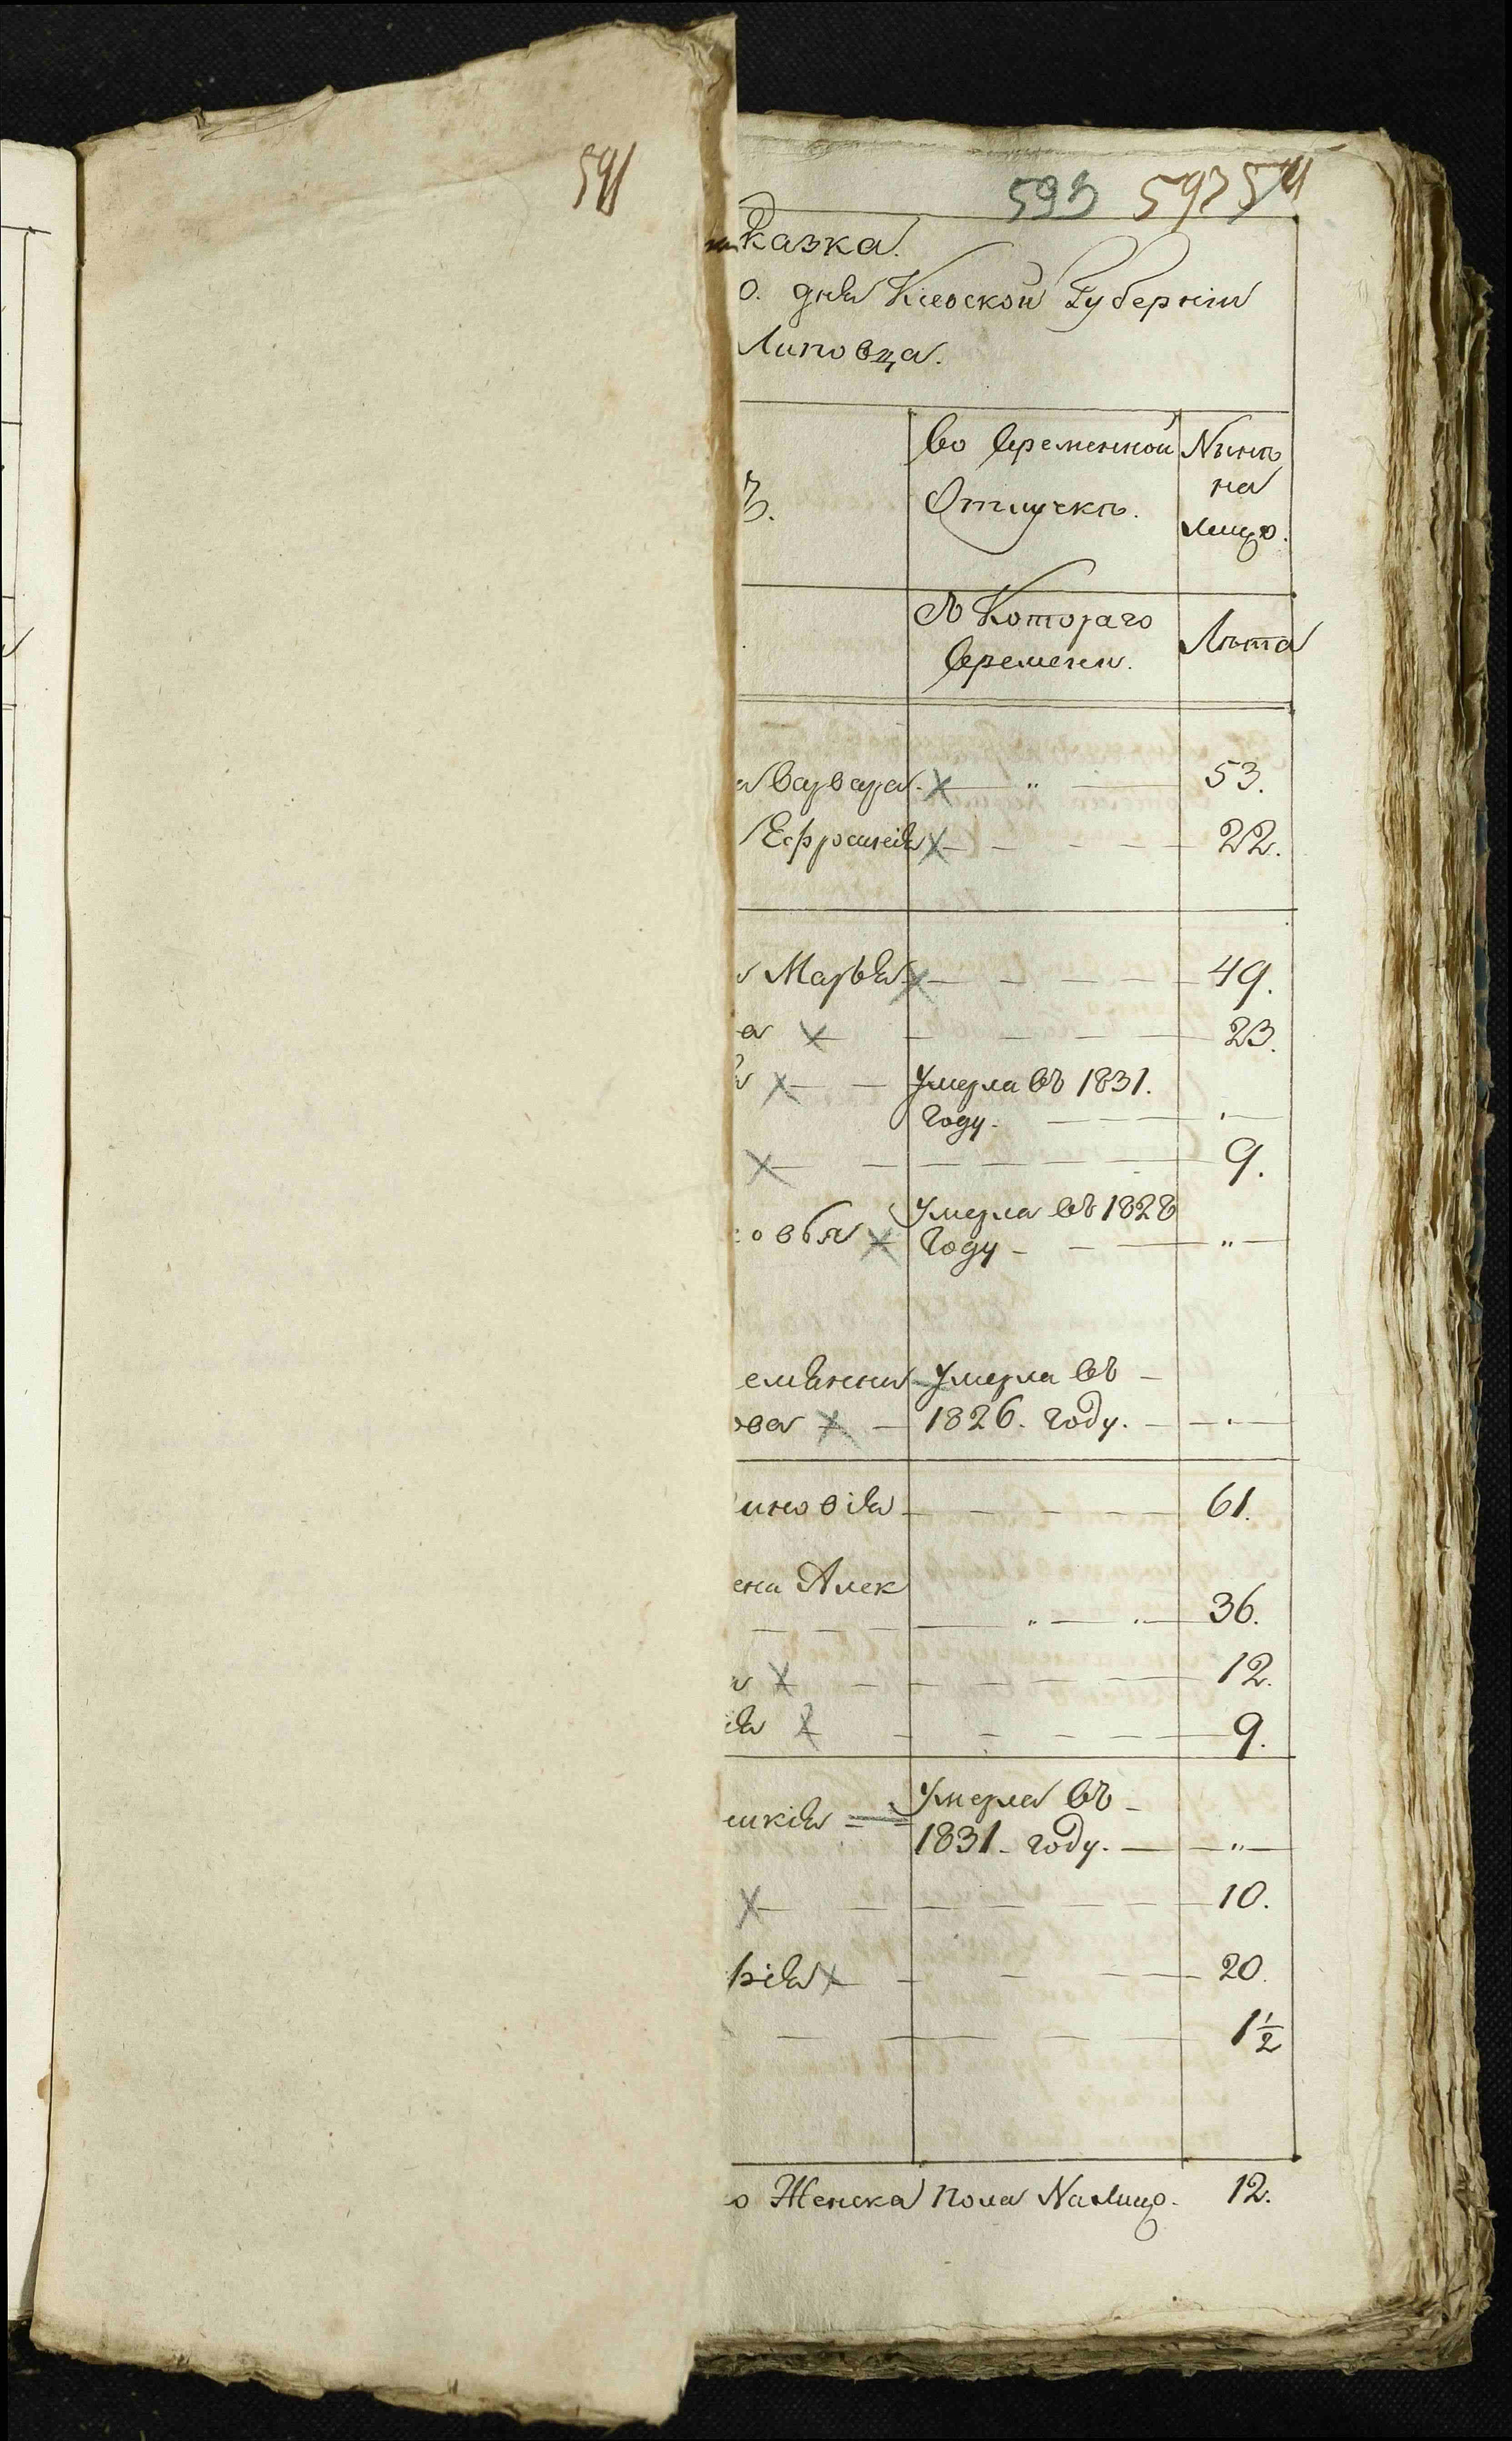 591
593 593 591
казка.
о. дня Кіевской Губерніи
Липовца.
ъ.
Во Временной
Отлучкѣ.
Нынѣ
на
лицо.
Съ Котораго
Времени.
Лѣта
Варвара. 53.
Ефросинія 22.
Марья 49.
а 23.
Умерла въ 1831.
году.
9.
Умерла въ 1828
овья году
емянни Умерла въ
ова 1826. году.
иновія 61.
ена Алек
36.
12.
ія 9.
Умерла въ
шкія 1831 году.
10.
рія 20.
1½
о Женска пола На лицо. 12.